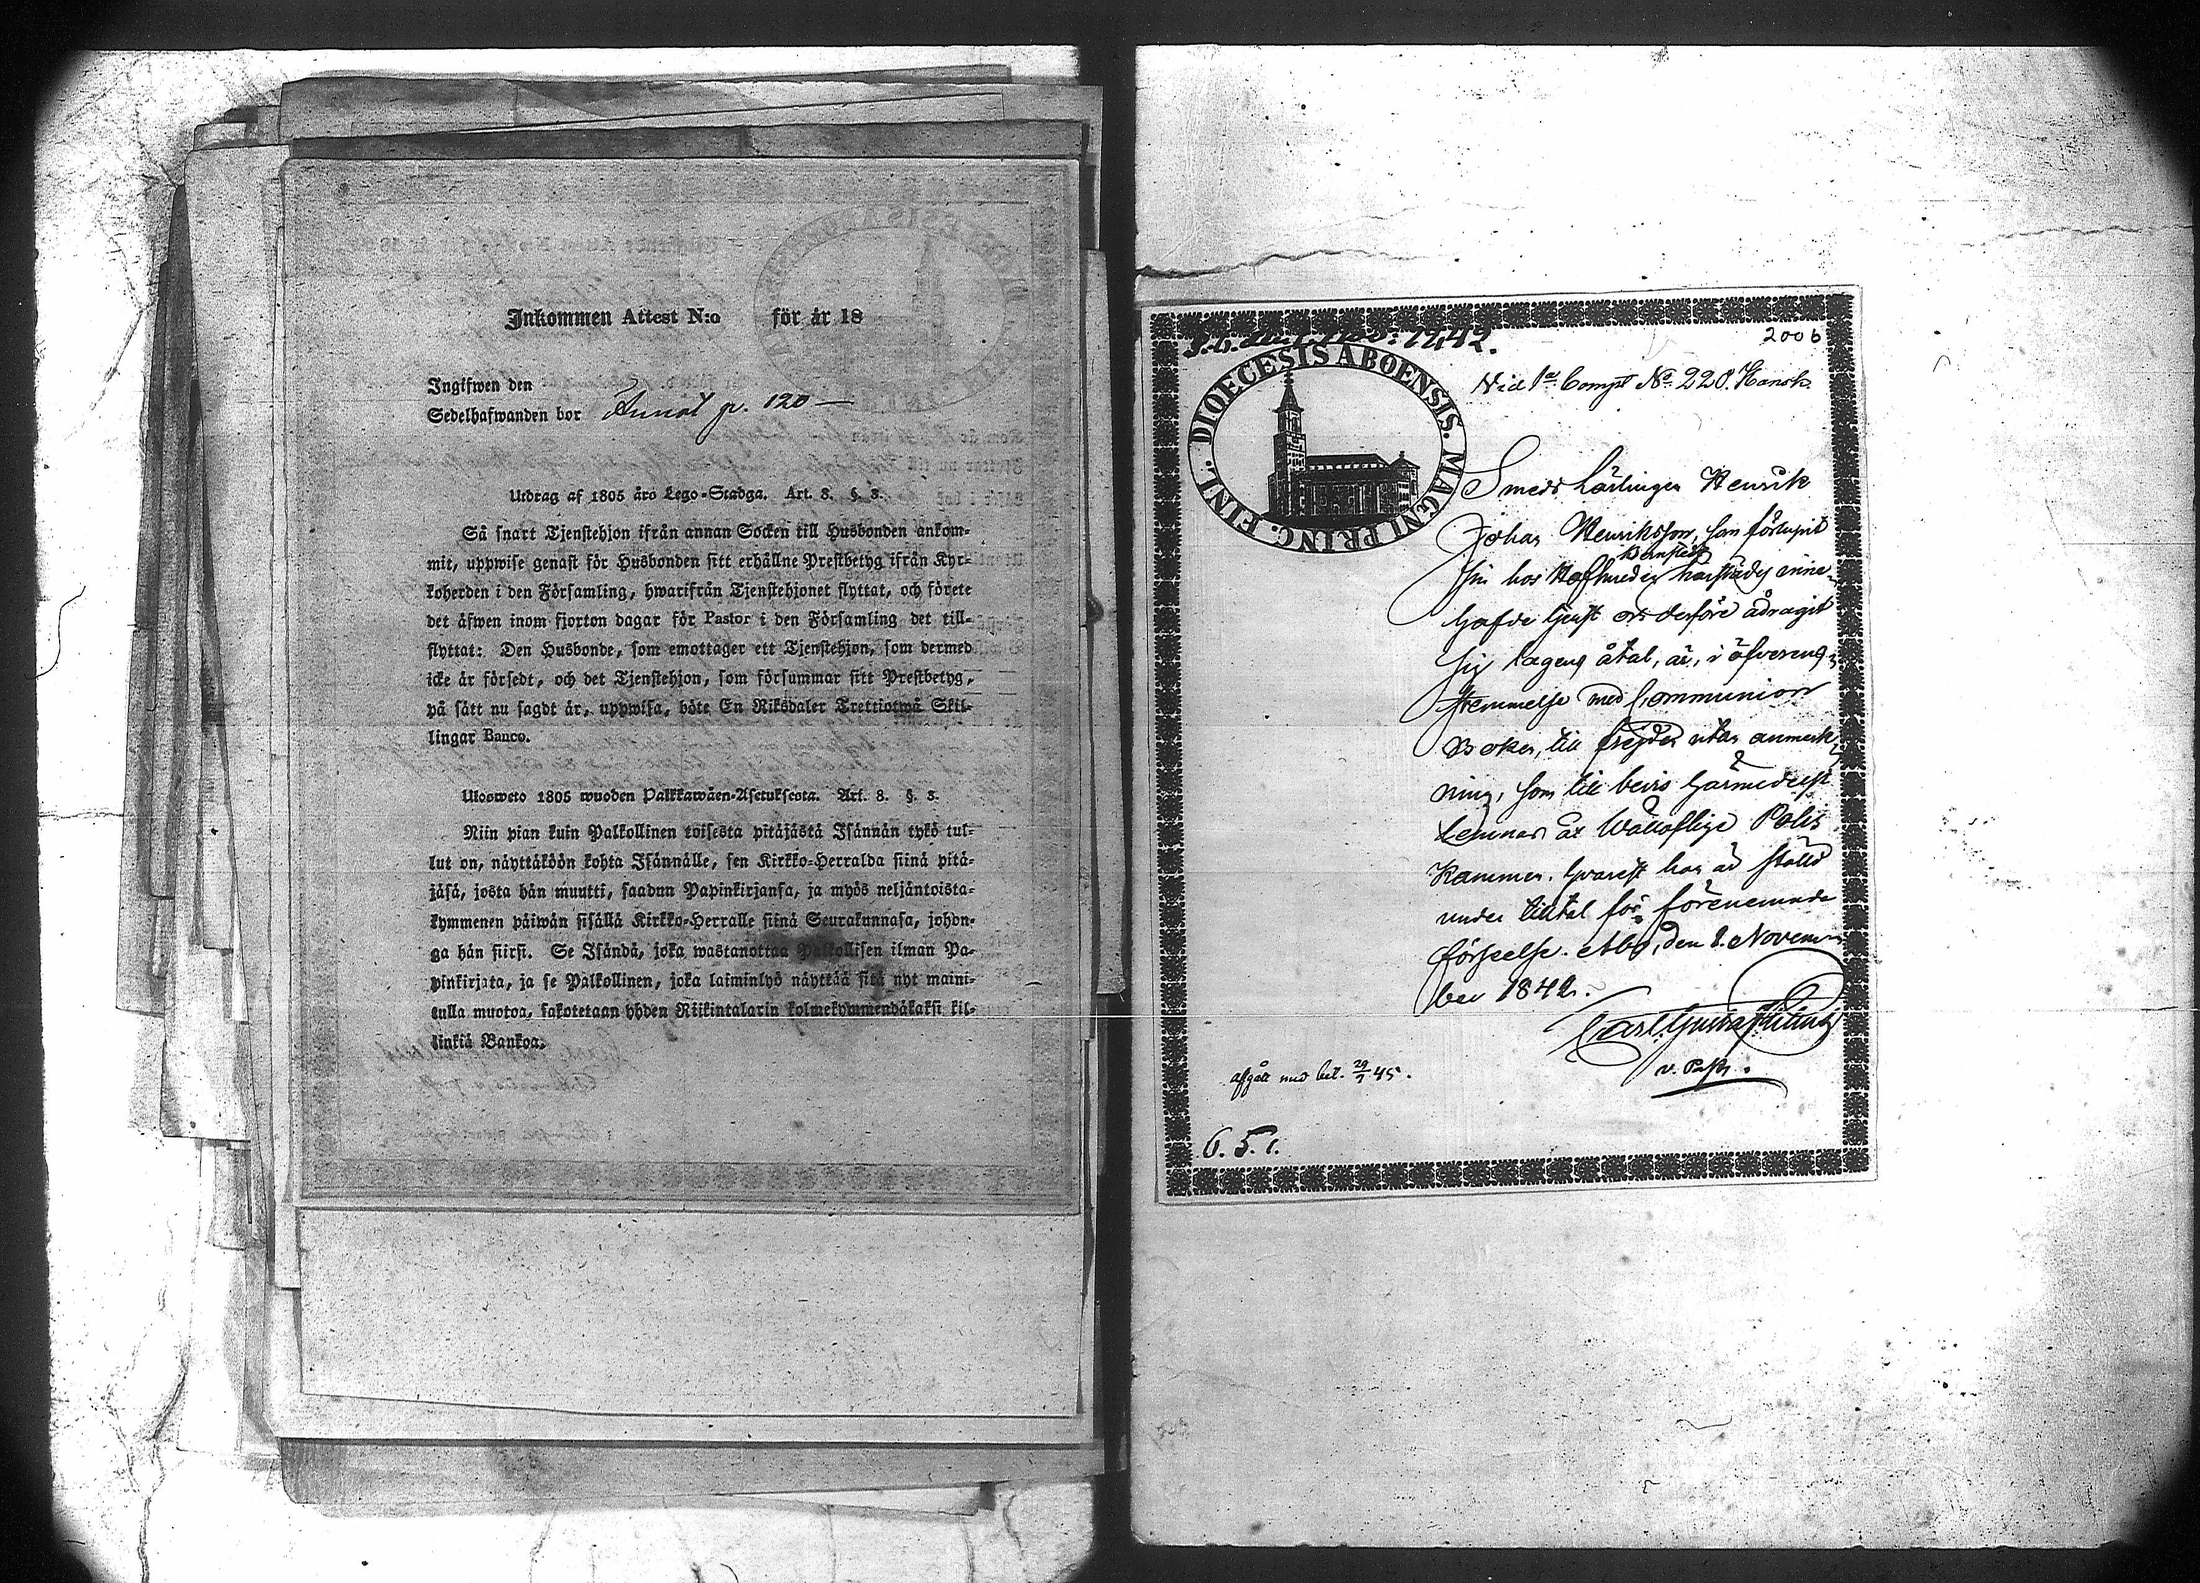 Inkommen Attest N:o för år 18
Ingifwen den
Sedelhafwanden bor Aunal p. 120 —
Utdrag af 1805 års Lego-Stadga. Art. 3. §. 3.
Så snart Tjenstehjon ifrån annan Socken till Husbonden ankom-
mit, uppwise genast för Husbonden sitt erhållne Prestbetyg ifrån Kyr-
koherden i den Församling, hwarifrån Tjenstehjonet flyttat, och förete
det äfwen inom fjorton dagar för Pastor i den Församling det till-
flyttat: Den Husbonde, som emottager ett Tjenstehjon, som dermed
icke är försedt, och det Tjenstehjon, som försummar sitt Prestbetyg,
på sätt nu sagdt är, uppwisa, böte En Riksdaler Trettiotwå Skil-
lingar Banco.
Ulosweto 1805 wuoden Palkkawäen-Asetuksesta. Art. 3. §. 3.
Niin pian kuin Palkollinen toisesta pitäjästä Isännän tykö tul-
lut on, näyttäköön kohta Isännälle, sen Kirkko-Herralda siinä pitä-
jäsä, josta hän muutti, saadun Papinkirjansa, ja myös neljäntoista-
kymmenen päiwän sisällä Kirkko-Herralle siinä Seurakunnasa, johon-
ga hän siirsi. Se Isändä, joka wastanottaa Palkollisen ilman Pa-
pinkirjata, ja se Palkollinen, joka laiminlyö näyttää sitä nyt maini-
tulla muotoa, sakotetaan yhden Riikintalarin kolmekymmendäkaksi kil-
linkiä Bankoa.
2006
1742.
DIOECESIS ABOENSIS. MAGNI PRINC. FINL.
Vid 1a Compt No 220. Hansk.
Smeds Lärlingen Henrik
Johan Henriksson, som förlupit
sin hos Hofsmeden härstädes inne-
hafde tjenst och derföre ådragit
sig lagens åtal, är, i öfverens-
stemmelse med Communion
Boken, till frejden utan anmärk-
ning, som till bevis härmedelst
lemnas åt Wällofliga Polis
Kammer, hvarest han är ställd
under tilltal för förenemnde
förseelse. Åbo, den 8. Novem-
ber 1842.
Carl Gustaf
v. Past.
afgått med bet. 29/7 45.
6. 5. 1.